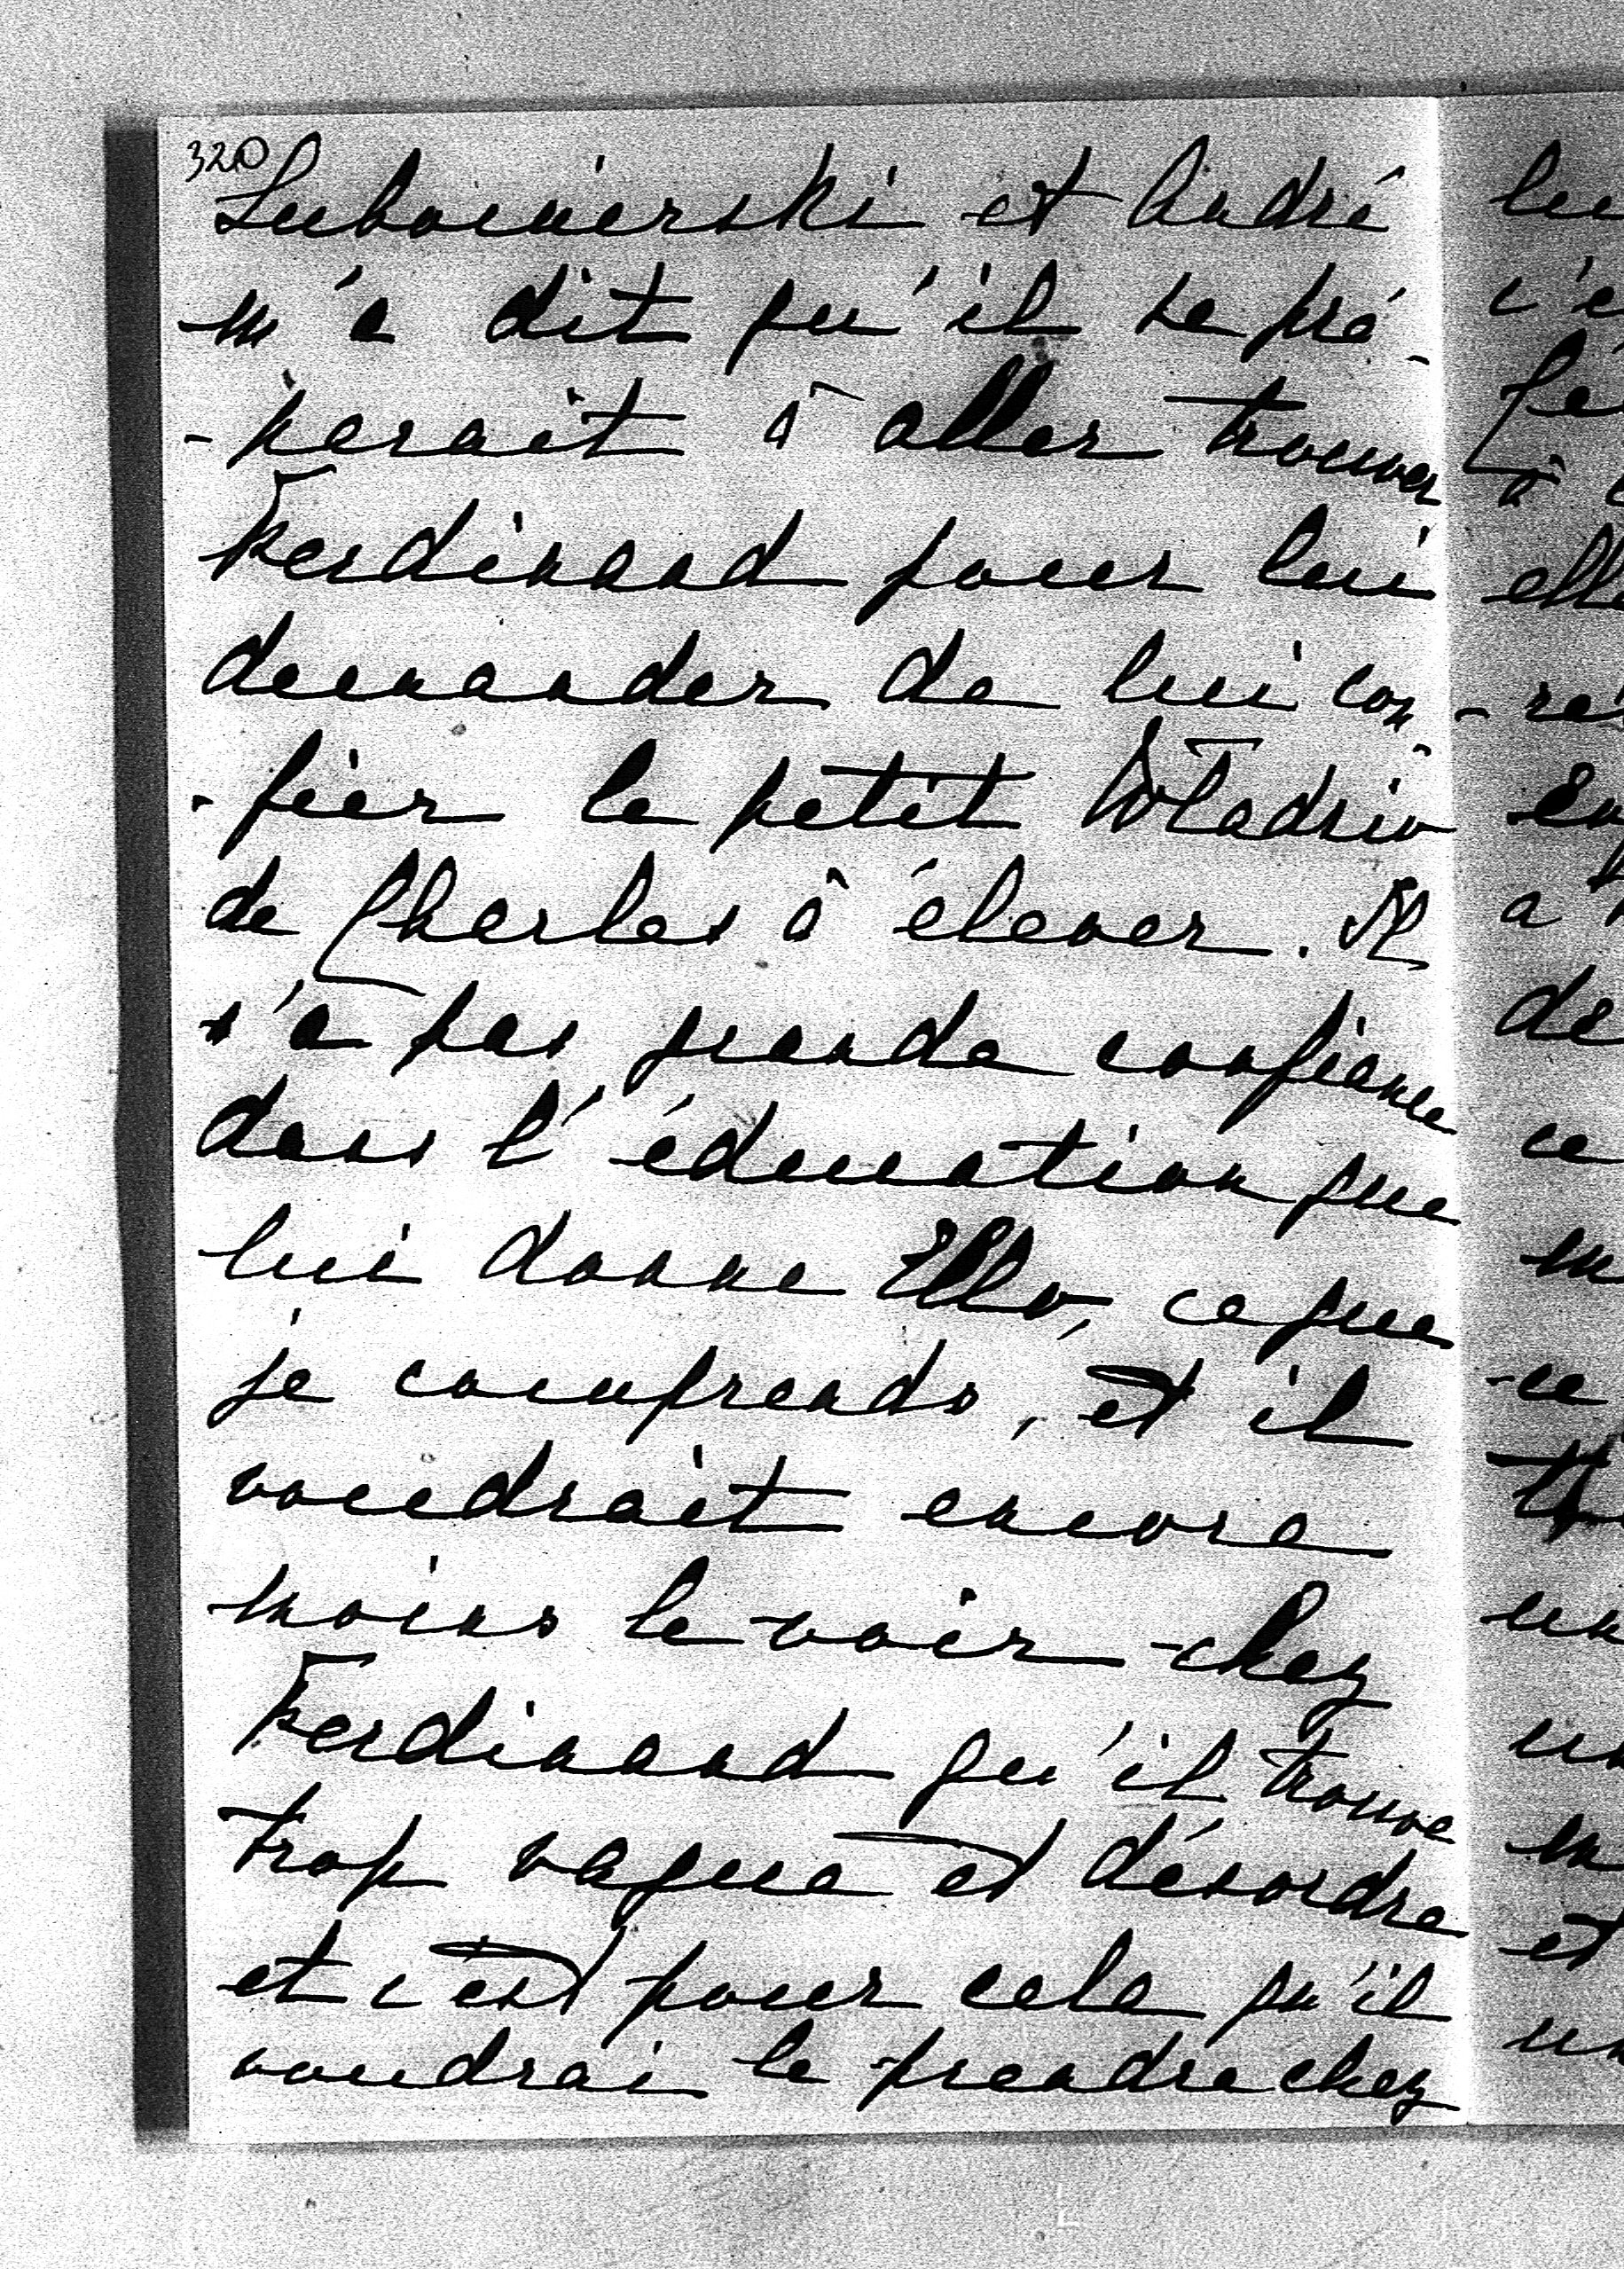 320
Lubomirski et André
m'a dit qu'il se pré-
-parait à aller trouver
Ferdinand pour lui
demander de lui con-
-fier le petit
de Charles à élever. Il
n'a pas grande confiance
dans l'éducation que
lui donne ce que
je comprends, et il
voudrait encore
moins le voir chez
Ferdinand qu'il trouve
trop vague et désordre
et c'est pour cela qu'il
voudrai le prendre chez